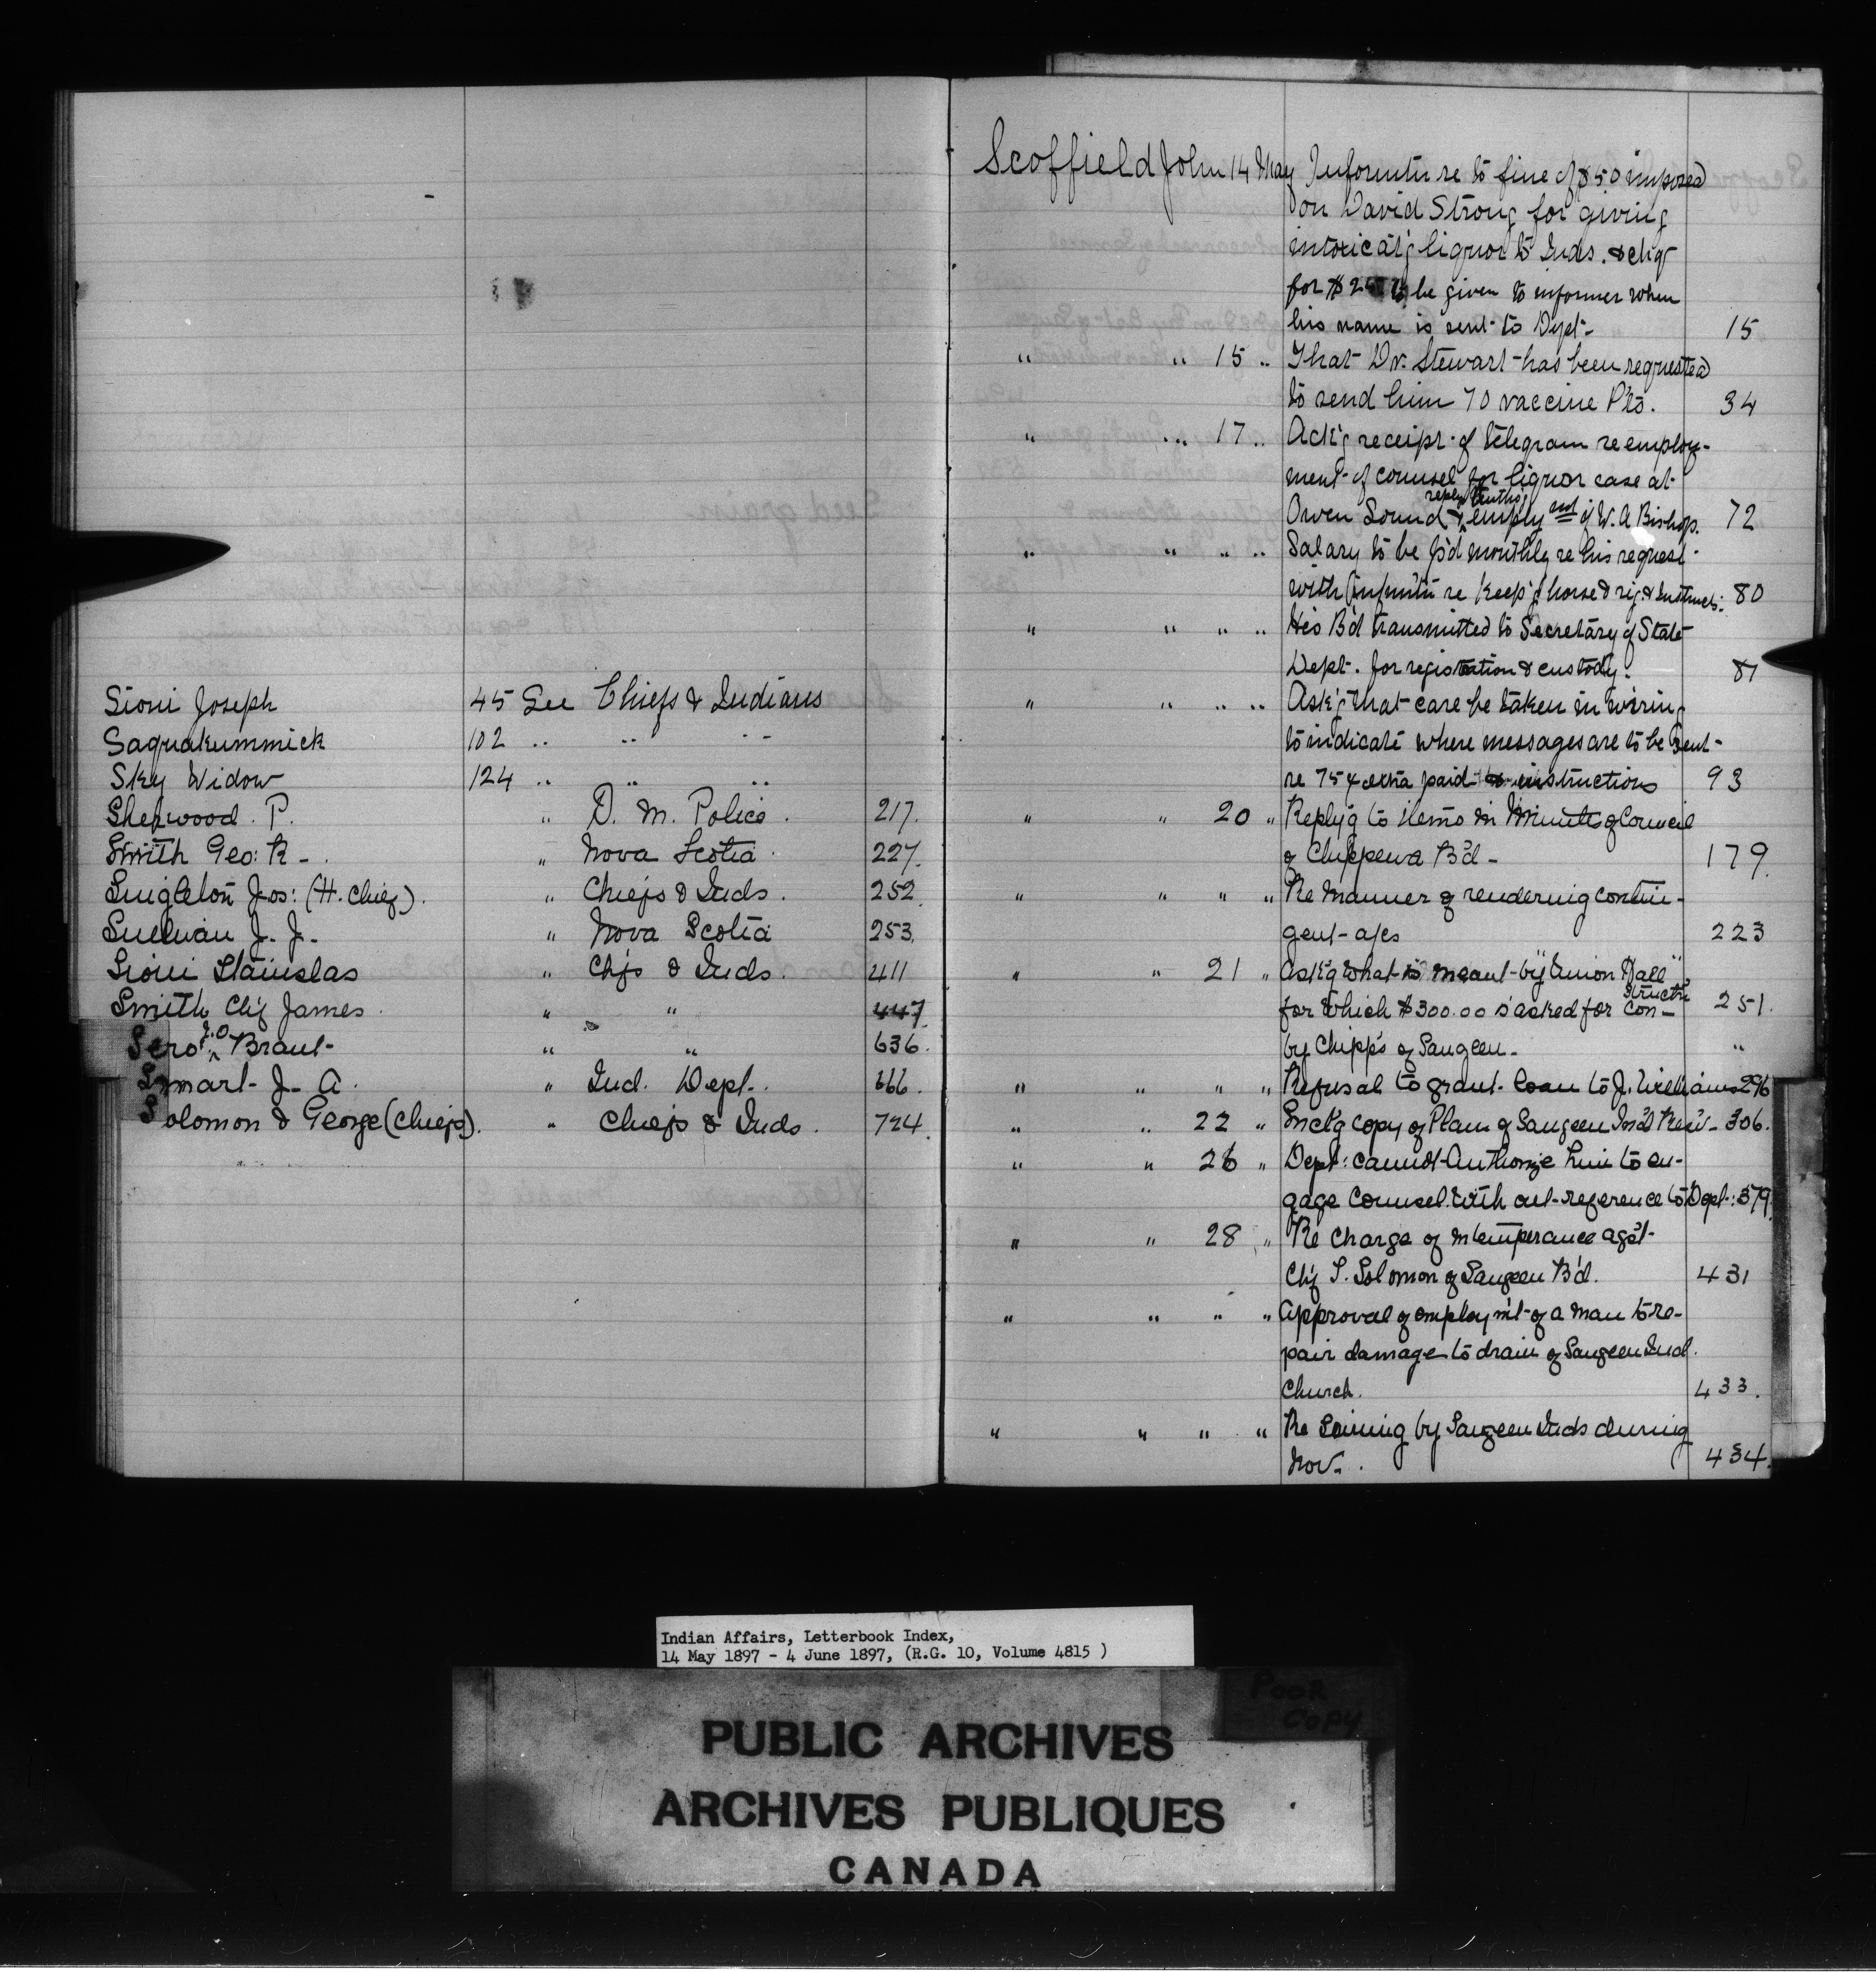 Sioui Joseph 45 See Chiefs & Indians
Saquakummick 102 " " "
Sky Widow 124 " " "
Sherwood. P. " D. M. Police. 217.
Smith Geo: R - . " Nova Scotia. 227.
Singleton Jos: (H. Chief). " Chiefs & Inds. 252.
Sullivan J. J. " Nova Scotia 253.
Sioui Stanislas " Chfs & Inds. 411
Smith Chf James. " " 447.
Sero Brant- " " 636.
Smart- J. A. " Ind. Dept. 666.
Solomon & George (Chiefs). " Chiefs & Inds. 724.
Scoffield John 14 May Informtn re to fine of $50 imposed
on David Strong for giving
intoxicat'g liquor to Inds. & chq
for $25 to be given to informer when
his name is sent to Dept- 15
" " 15 " That Dr. Stewart has been requested
to send him 70 vaccine Pts. 34
" " 17 " Ack'g receipt of telegram re employ-
ment of counsel for liquor case at
reply
Owen Sound & employ of W. A Bishop. 72
" " " " Salary to be p'd monthly re his request
with informtn re Keep'g horse & rig & Instruct: 80
" " " " His B'd transmitted to Secretary of State
Dept. for registration & custody. 87
" " " " Ask'g that care be taken in wiring
to indicate where messages are to be sent-
re 75¢ extra paid instructions 93
" " 20 " Reply'g to items in Minutes of Council
of Chippewa B'd - 179.
" " " " Re manner of rendering contin-
gent a/cs 223
" " 21 " Ask'g what is meant by "Union Hall"
structn
for which $300.00 is asked for Con- 251.
by Chipp's of Saugeen. "
" " " " Refusal to grant loan to J. Williams 296
" " 22 " Encl'g copy of Plan of Saugeen Ind Resv- 306.
" " 26 " Dept: cannot Authorize him to en-
gage Counsel with out reference to Dept: 379.
" " 28 " Re Charge of intemperance ag'st
Chf S. Solomon of Saugeen B'd. 431
" " " " Approval of employm't of a man to re-
pair damage to drain of Saugeen Ind.
Church. 433.
" " " " Re Seining by Saugeen Inds during
Nov. 434.
Indian Affairs, Letterbook Index,
14 May 1897 - 4 June 1897, (R.G. 10, Volume 4815 )
Poor
Copy
PUBLIC ARCHIVES
ARCHIVES PUBLIQUES
CANADA